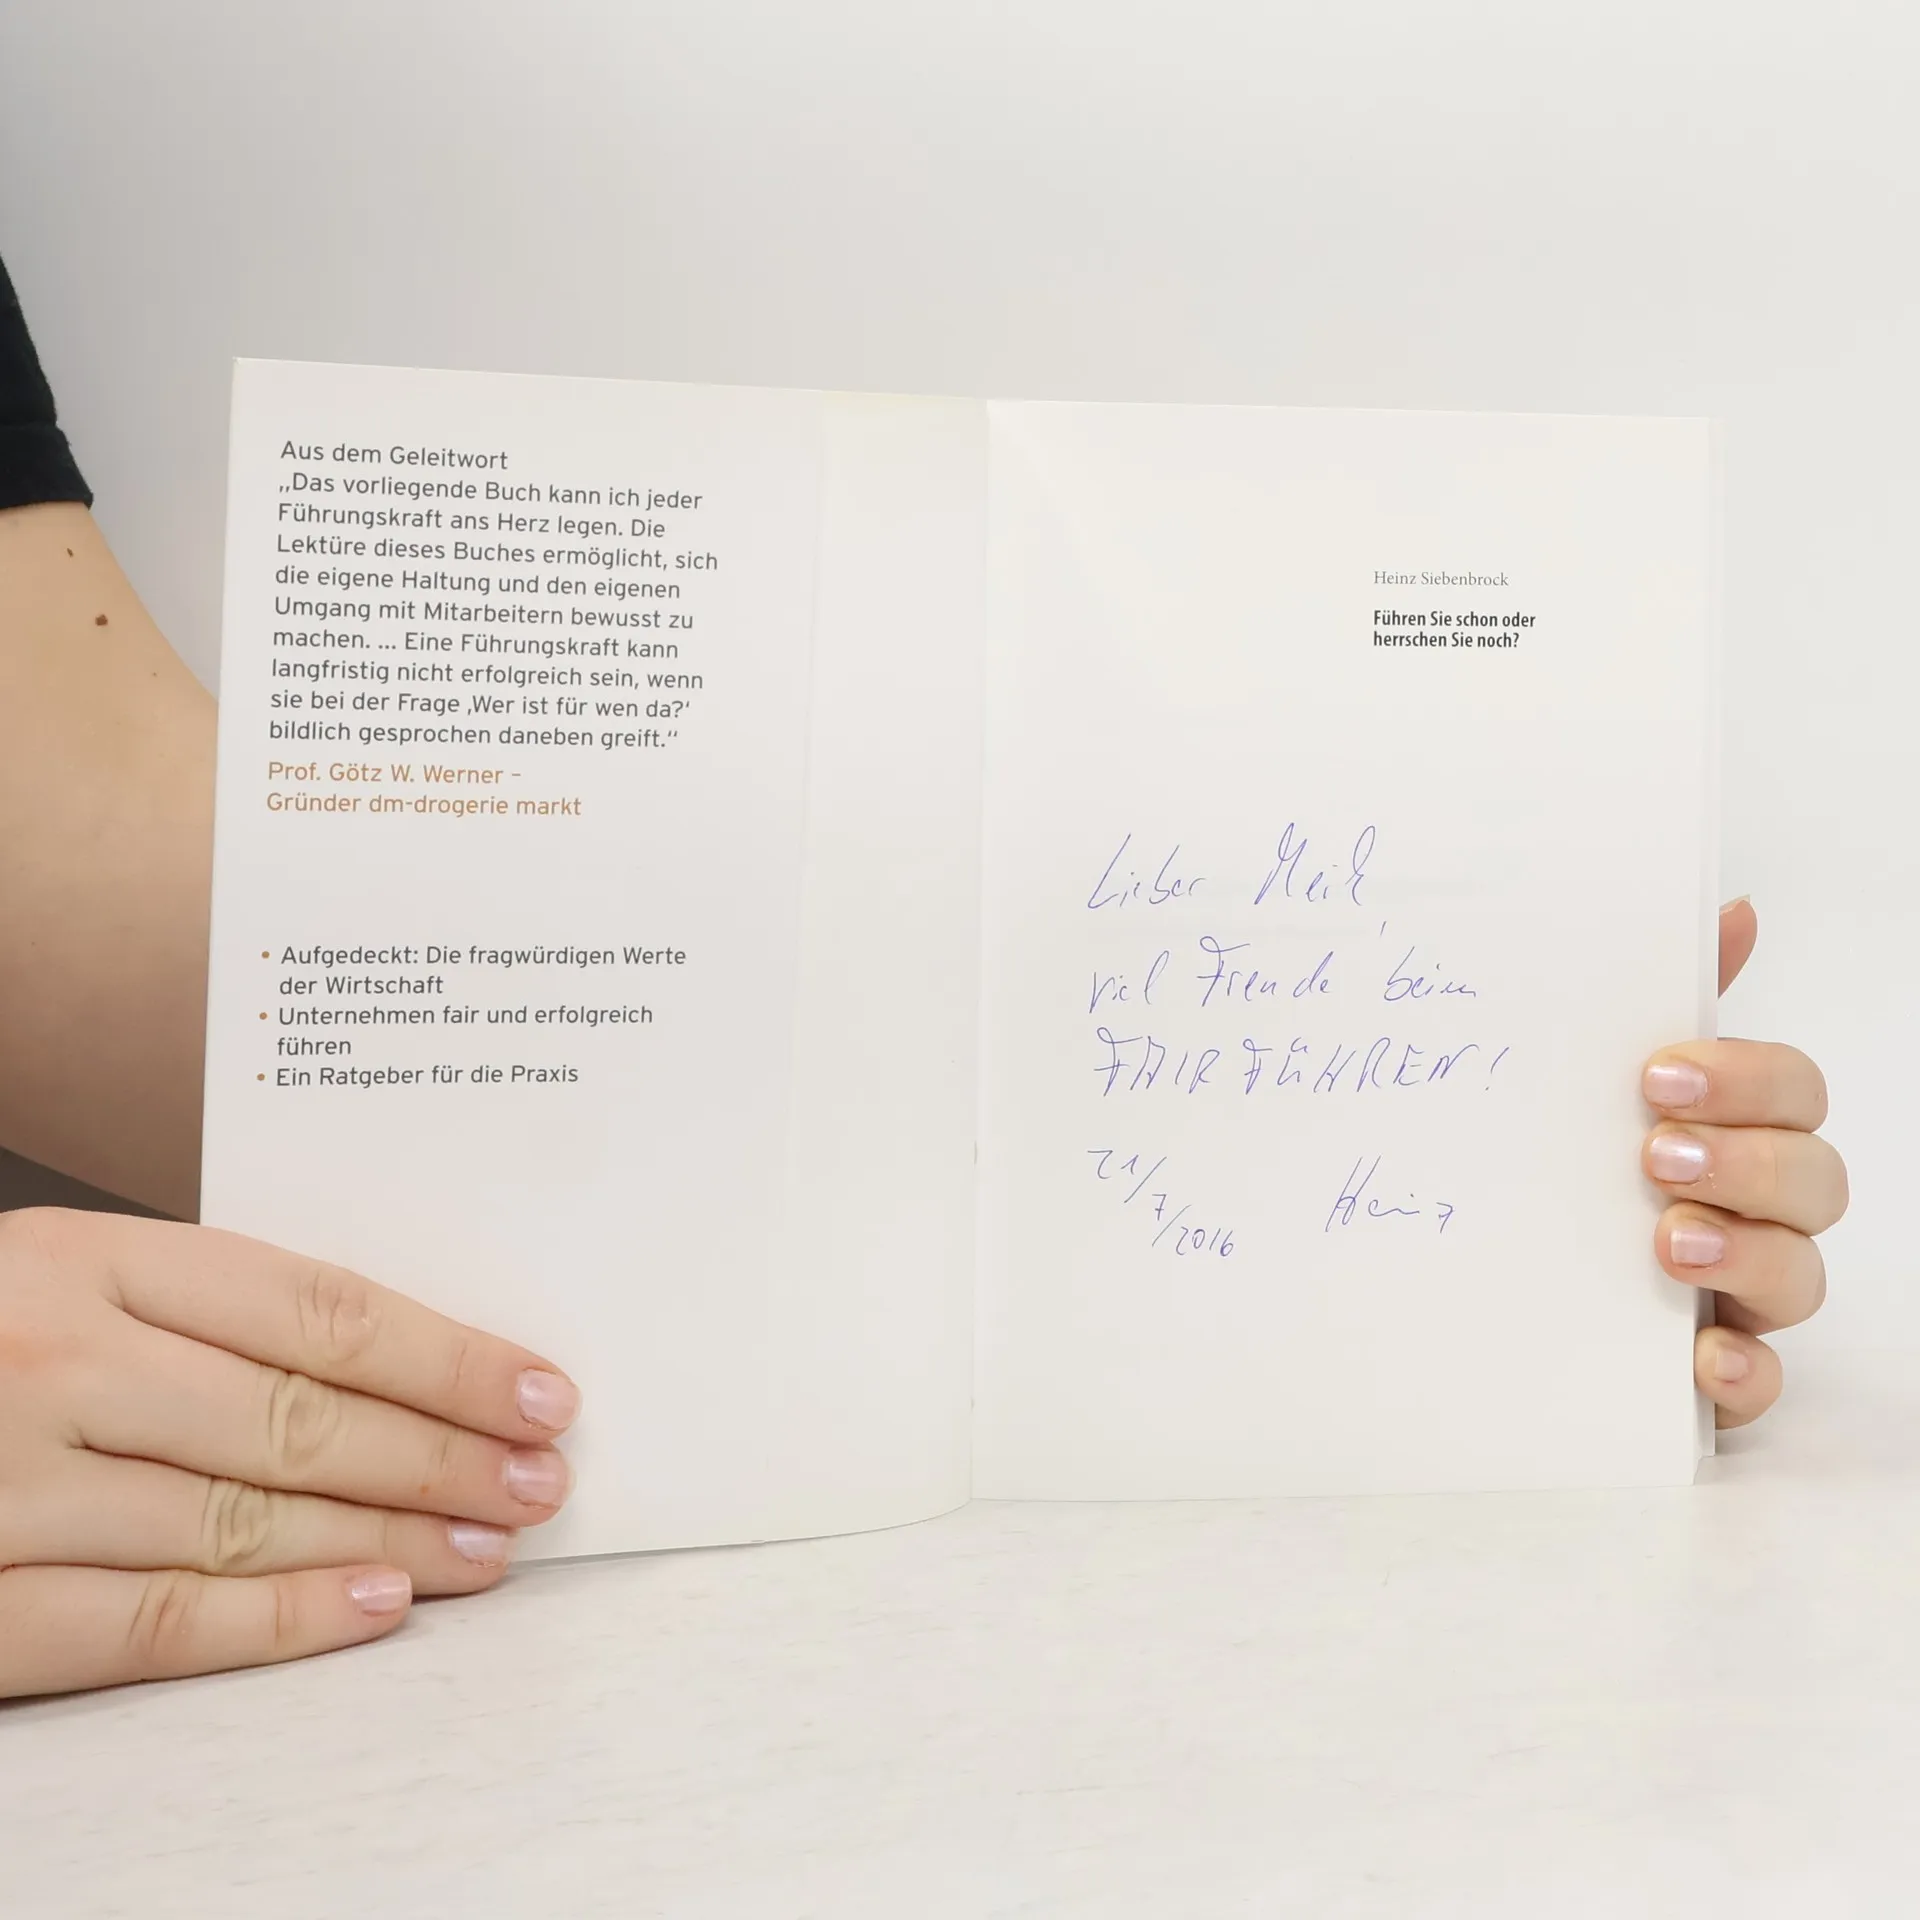 Aus dem Geleitwort
„Das vorliegende Buch kann ich jeder
Führungskraft ans Herz legen. Die
Lektüre dieses Buches ermöglicht, sich
die eigene Haltung und den eigenen
Umgang mit Mitarbeitern bewusst zu
machen. ... Eine Führungskraft kann
langfristig nicht erfolgreich sein, wenn
sie bei der Frage ‚Wer ist für wen da?‘
bildlich gesprochen daneben greift.“
Prof. Götz W. Werner –
Gründer dm-drogerie markt
• Aufgedeckt: Die fragwürdigen Werte
der Wirtschaft
• Unternehmen fair und erfolgreich
führen
• Ein Ratgeber für die Praxis
Heinz Siebenbrock
Führen Sie schon oder
herrschen Sie noch?
Lieber Meik,
viel Freude beim
FAIR FÜHREN!
21/7/2016 Heinz